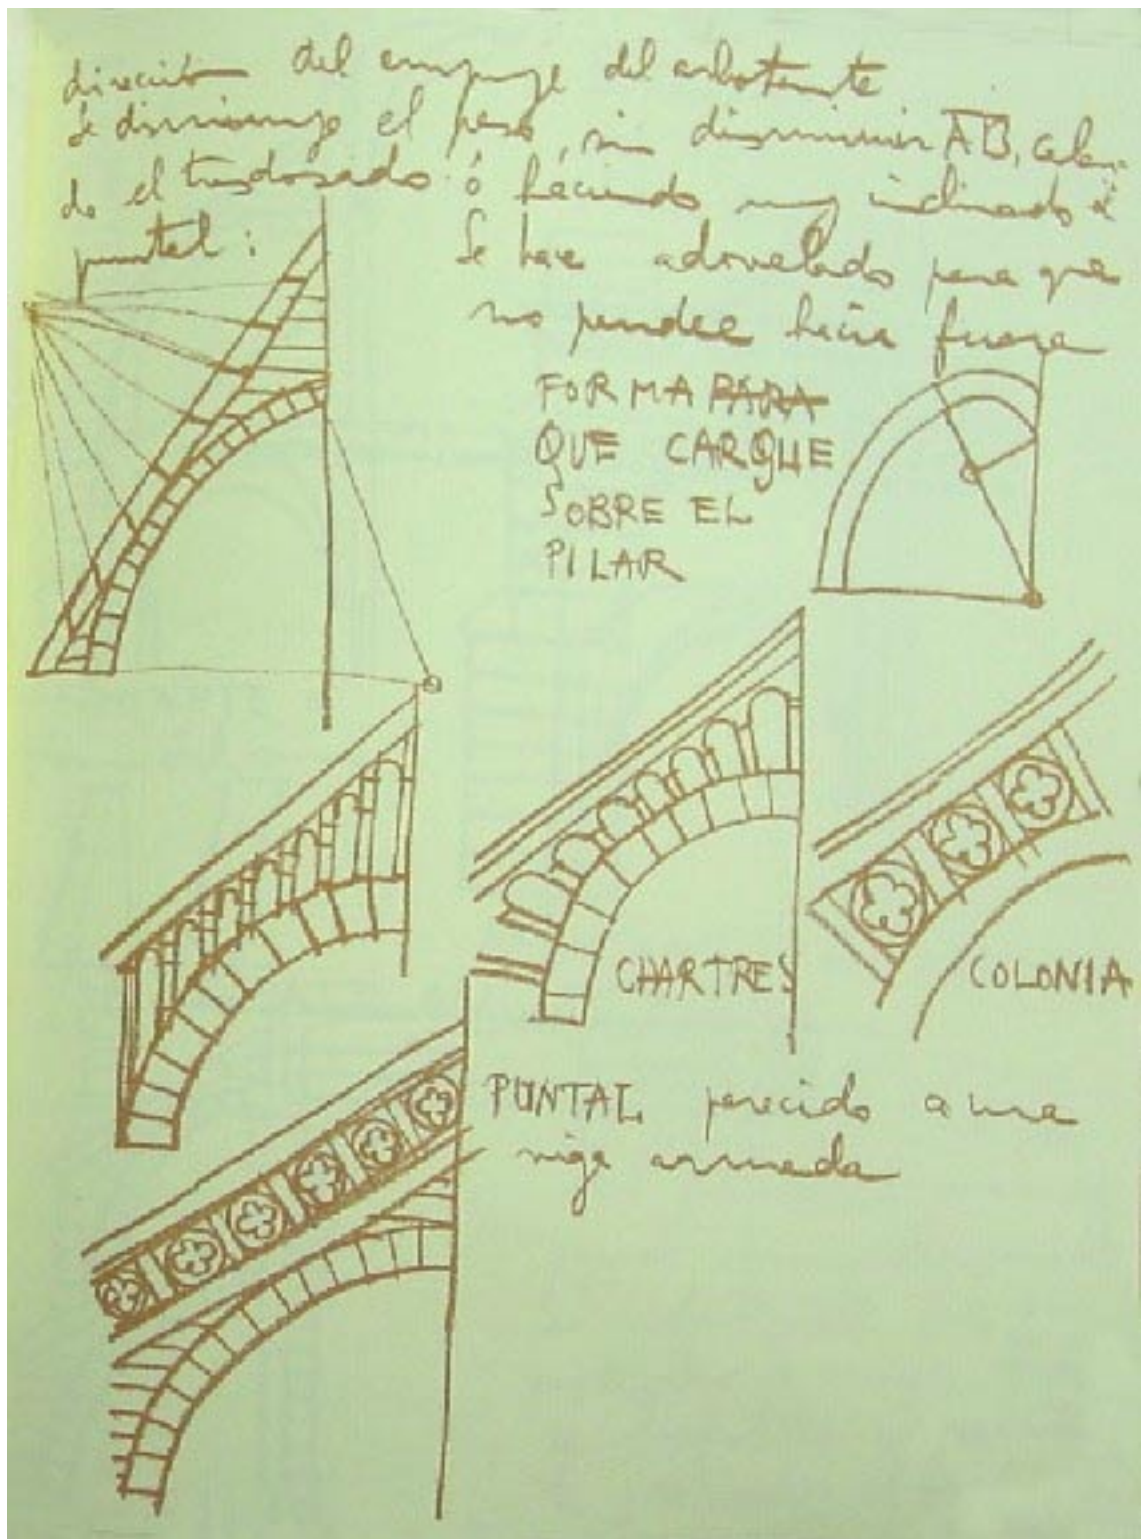 dirección del empuje del arbotante
Se disminuye el peso, sin disminuir AB, calan-
do el trasdosado ó haciendo muy inclinado el
puntal:
Se hace adovelado para que
no pandee hacia fuera
FORMA PARA
QUE CARGUE
SOBRE EL
PILAR
CHARTRES
COLONIA
PUNTAL parecido a una
viga armada